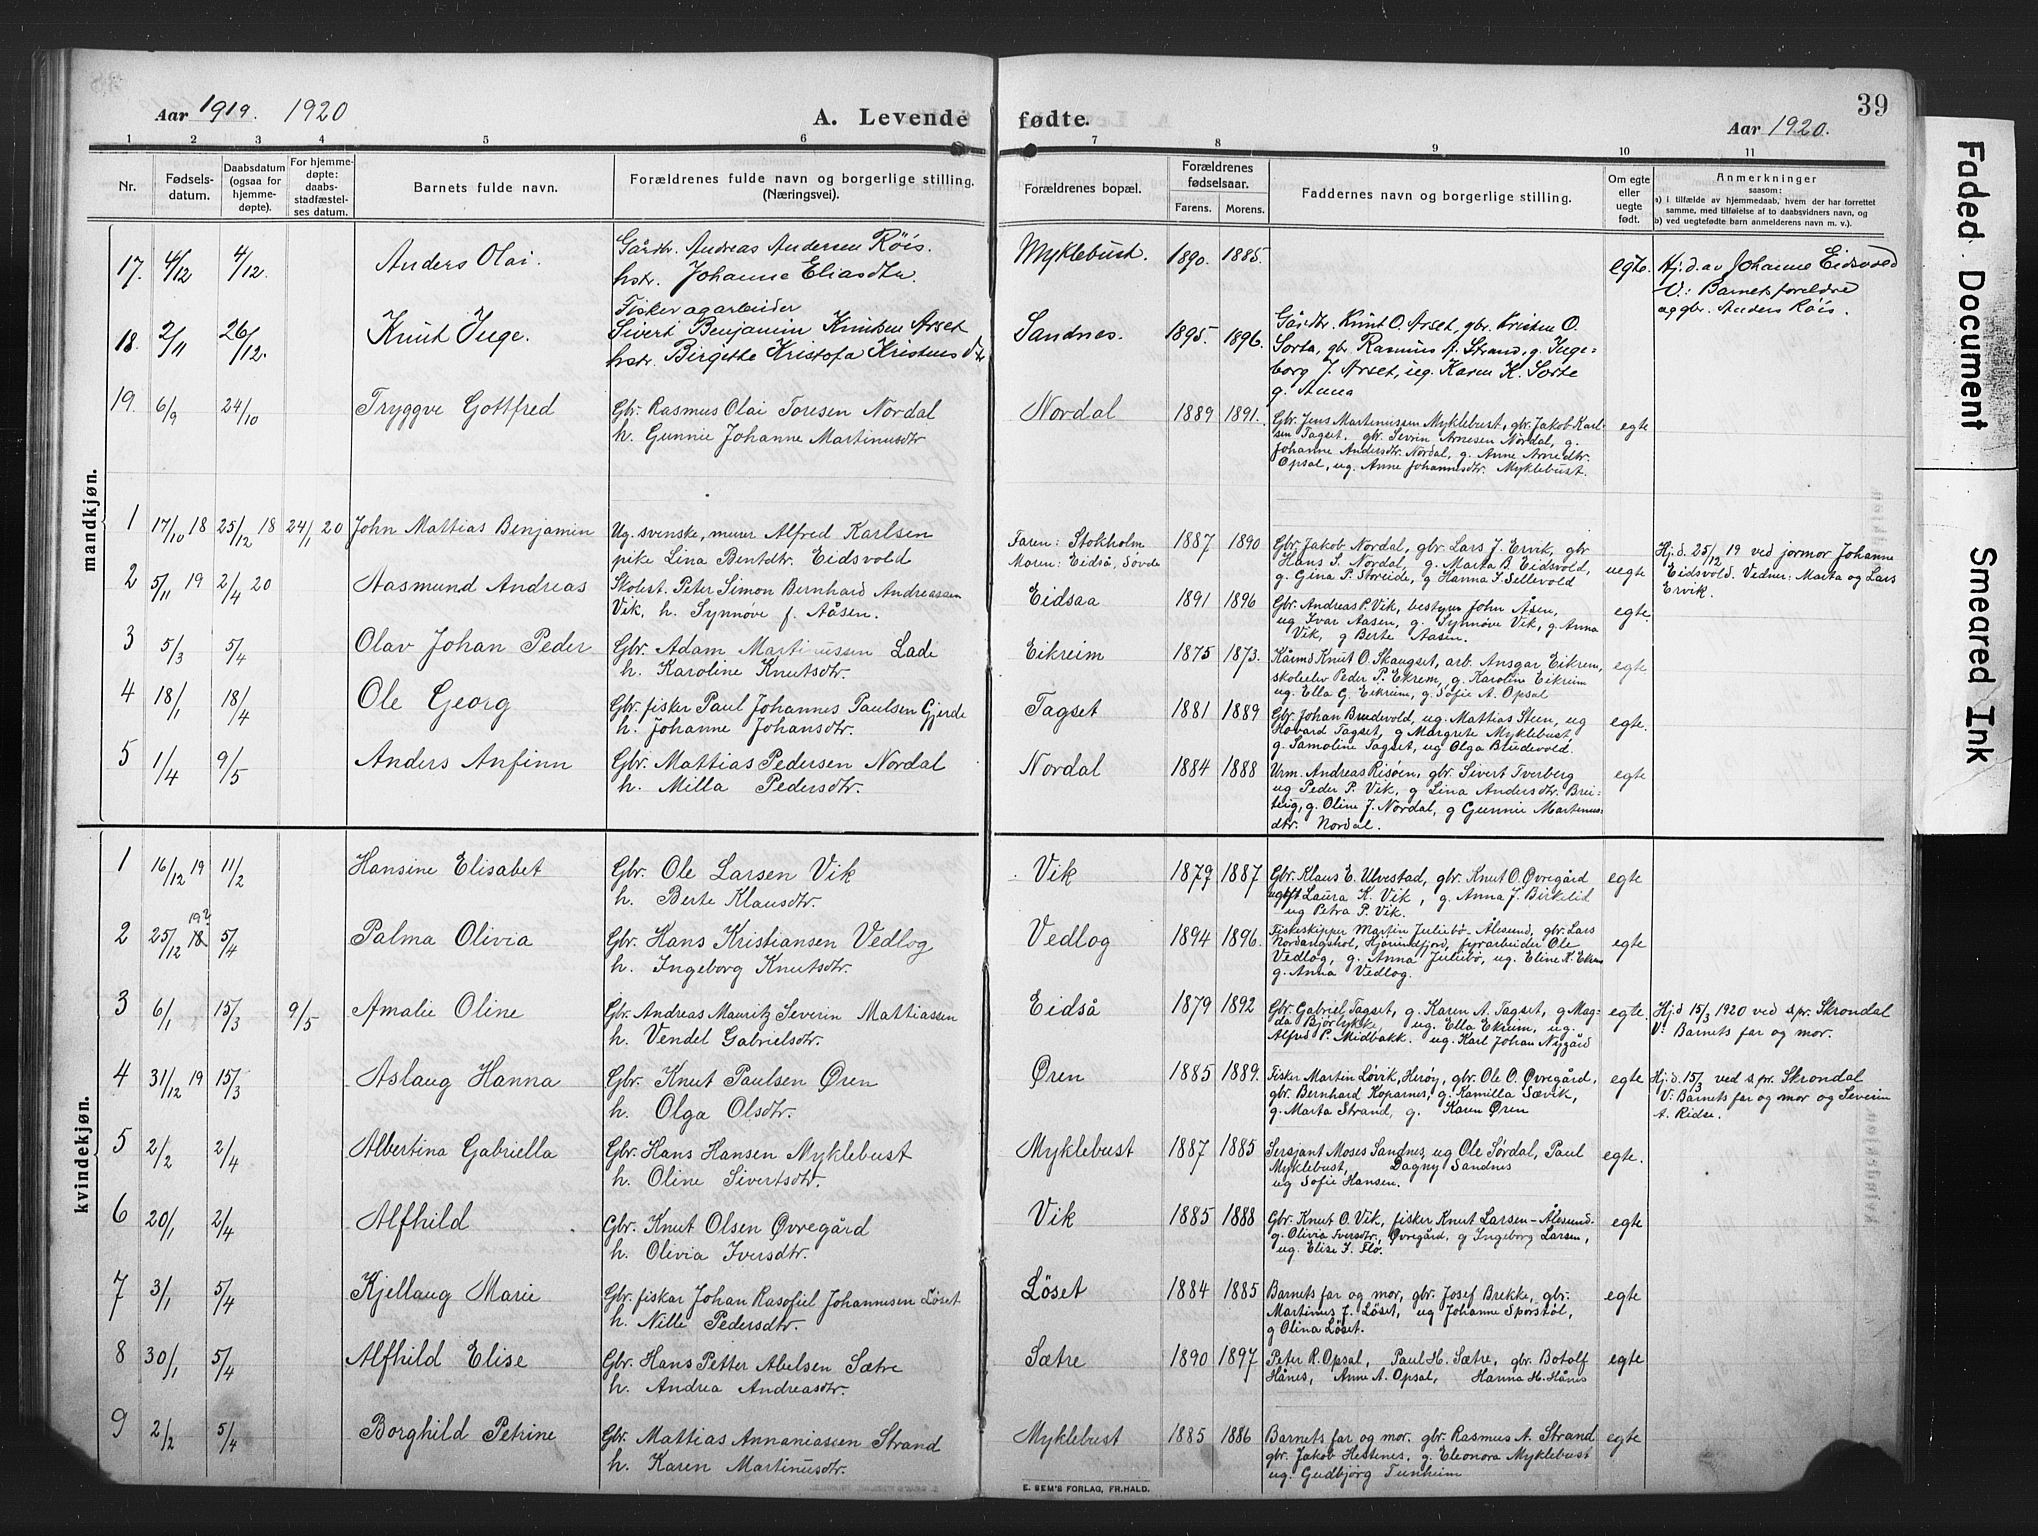 Aar 1919. 1920 A. Levende fødte. Aar 1920. 39
1 2 3 4 5 6 7 8 9 10 11
Nr. Fødselsdatum. Daabsdatum (ogsaa for hjemmedøpte). For hjemmedøpte: daabsstadfæstelses datum. Barnets fulde navn. Forældrenes fulde navn og borgerlige stilling. (Næringsvei). Forældrenes bopæl. Forældrenes fødselsaar. Farens. Morens. Faddernes navn og borgerlige stilling. Om egte eller uegte født. Anmerkninger saasom: a) i tilfælde av hjemmedaab, hvem der har forrettet samme, med tilføielse af to daabsvidners navn, og b) ved uegtefødte barn anmelderens navn m. v.).
mandkjøn.
17. 4/12 4/12. Anders Olai. Gårdbr. Andreas Andersen Röis. Myklebust. 1890. 1885. egte. Hj.d. av Johanne Eidsvold
hstr. Johanne Eliasdtr. V.: Barnets foreldre
og gbr. Anders Röis.
18. 2/11 26/12. Knut Inge. Fisker og arbeider
Sivert Benjamin Knutsen Arset Sandnes. 1895. 1896. Gårdbr. Knut O. Arset, gbr. Kristen O.
hstr. Birgitte Kristofa Kristens dtr Sorte, gbr Rasmus A. Strand, g. Inge-
borg J. Arset, ug. Karen K. Sorte
g. Anna
19. 6/9 24/10 Tryggve Gottfred Gbr. Rasmus Olai Toresen Nordal Nordal 1889 1891. Gbr. Jens Martinussen Myklebust, gbr. Jakob Karl- egte
h. Gunnie Johanne Martinusdtr sen Tagset, gbr Severin Arnesen Nordal, g.
Johanne Andersdtr. Nordal, g. Anne Arnedtr.
Opsal, ug. Anne Johannesdtr. Myklebust.
1 17/10 18 25/12 18 24/1 20 John Mattias Benjamin Ug. svenske, murer Alfred Karlsen Faren: Stokholm 1887 1890 Gbr Jakob Nordal, gbr. Lars J. Ervik, gbr uegte Hj.d. 25/12 19 ved jormor Johanne
pike Lina Bentdtr. Eidsvold Moren: Eidså, Sövde Hans S. Nordal, g. Marta B. Eidsvold, Eidsvold. Vidner: Marta og Lars
g. Gina P. Storeide, g Hanna I. Sellevold Ervik.
2 5/11 19 2/4 20 Aasmund Andreas Skolest. Peter Simon Bernhard Andreassen Eidsaa 1891 1896 Gbr. Andreas P. Vik, bestyrer John Åsen, egte.
Vik, h. Synnöve f. Aåsen. ug Ivar Aasen, g. Synnöve Vik, g. Anna
Vik, g Berte Aasen.
3 5/3 5/4 Olav Johan Peder Gbr. Adam Martinussen Lade Eikreim 1875 1873. Kårmd Knut O. Skaugset, arb. Ansgar Eikrem, egte
h. Karoline Knutsdtr. skoleelev Peder P. Ekrem, g Karoline Eikrem
ug. Ella G. Eikreim, g. Sofie A. Opsal
4 18/1 18/4 Ole Georg Gbr. fisker Paul Johannes Paulsen Gjerde Tagset 1881 1889 Gbr. Johan Brudevold, ug. Mattias Steen, ug egte.
h. Johanne Johansdtr. Hovard Tagset, g Margrete Myklebust,
g. Samoline Tagset, ug Olga Brudevold.
5 1/4 9/5 Anders Anfinn Gbr. Mattias Pedersen Nordal Nordal 1884 1888 Urm. Andreas Risöen, gbr. Sivert Tverberg egte
h. Milla Pedersdtr. ug Peder P. Vik, g Lina Andersdtr. Brei-
teig, g. Oline J. Nordal, g Gunnie Martinus-
dtr. Nordal.
kvindekjøn.
1 16/12 19 11/2 Hansine Elisabet Gbr. Ole Larsen Vik Vik 1879 1887 Gbr. Klaus E. Ulvestad, gbr. Knut O. Øvregård egte
h. Berte Klausdtr. Laura K. Vik, g. Anna J. Birkelid
ug Petra P. Vik.
2 25/12 18 5/4 Palma Olivia Gbr. Hans Kristiansen Vedlog Vedlog 1894 1896. Fiskeskipper Martin Juliebø - Ålesund, gbr. Lars egte
h. Ingeborg Knutsdtr. Nordangshol, Hjörundfjord, fyrarbeider Ole
Vedlog, g. Anna Juliebø, ug. Eline K. Ekrem
g. Anna Vedlog.
3 6/1 15/3 9/5 Amalie Oline Gbr. Andreas Mauritz Severin Mattiassen Eidså 1879 1892 Gbr. Gabriel Tagset, g. Karen A. Tagset, g Mag- egte Hj.d 15/3 1920 ved s.pr. Skrondal
h. Vendel Gabrielsdtr. da Bjørlykke, ug. Ella Ekreim, ug. V: Barnets far og mor.
Alfred P. Midbakk. ug. Karl Johan Nygård
4 31/12 19 15/3 Aslaug Hanna Gbr. Knut Paulsen Øren Øren 1885 1889. Fisker Martin Løvik, Herøy, gbr. Ole O. Øvregård, egte Hj.d. 15/3 ved s.pr. Skrondal
h. Olga Olsdtr. gbr. Bernhard Koparnes, g. Kamilla Sævik, V: Barnets far og mor og Severin
g. Marta Strand, g. Karen Øren A. Ridse.
5 2/2 2/4 Albertina Gabriella Gbr. Hans Hansen Myklebust Myklebust 1887 1885 Sersjant Moses Sandnes, ug Ole Sørdal, Paul egte.
h. Oline Sivertsdtr. Myklebust, Dagny Sandnes
ug Sofie Hansen.
6 20/1 2/4 Alfhild Gbr. Knut Olsen Øvregård Vik 1885 1888 Gbr. Knut O. Vik, fisker Knut Larsen - Ålesund. egte
h. Olivia Iversdtr. g. Olivia Iversdtr, Øvregård, g Ingeborg Larsen,
ug. Elise I. Flø.
7 3/1 5/4 Kjellaug Marie Gbr. fiskar Johan Rasofiel Johannesen Løset Løset 1884 1885 Barnets far og mor, gbr. Josef Brekke, gbr. egte
h. Nille Pedersdtr. Martinus J. Løset, ug Johanne Sporstøl,
g Olina Løset.
8 30/1 5/4 Alfhild Elise Gbr. Hans Petter Abelsen Sætre Sætre 1890 1897 Peter R. Opsal, Paul H. Sætre, gbr. Botolf egte
h. Andrea Andreasdtr. Hånes, Anne A. Opsal, Hanna H. Hånes
9 2/2 5/4 Borghild Petrine Gbr. Mattias Annaniassen Strand Myklebust 1885 1886 Barnets far og mor, gbr. Rasmus A. Strand egte
h. Karen Martinusdtr. gbr. Jakob Hestenes, g. Eleonora Myklebust
ug. Gudbjørg Tunheim
E. SEM'S FORLAG, FR.HALD.
Faded Document
Smeared Ink